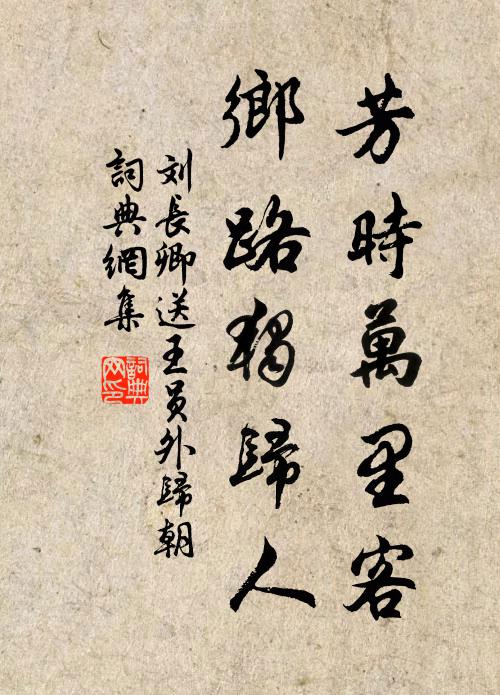 芳時萬里客
鄉路獨歸人
刘長卿送王员外歸朝
詞典網集
詞典
网印